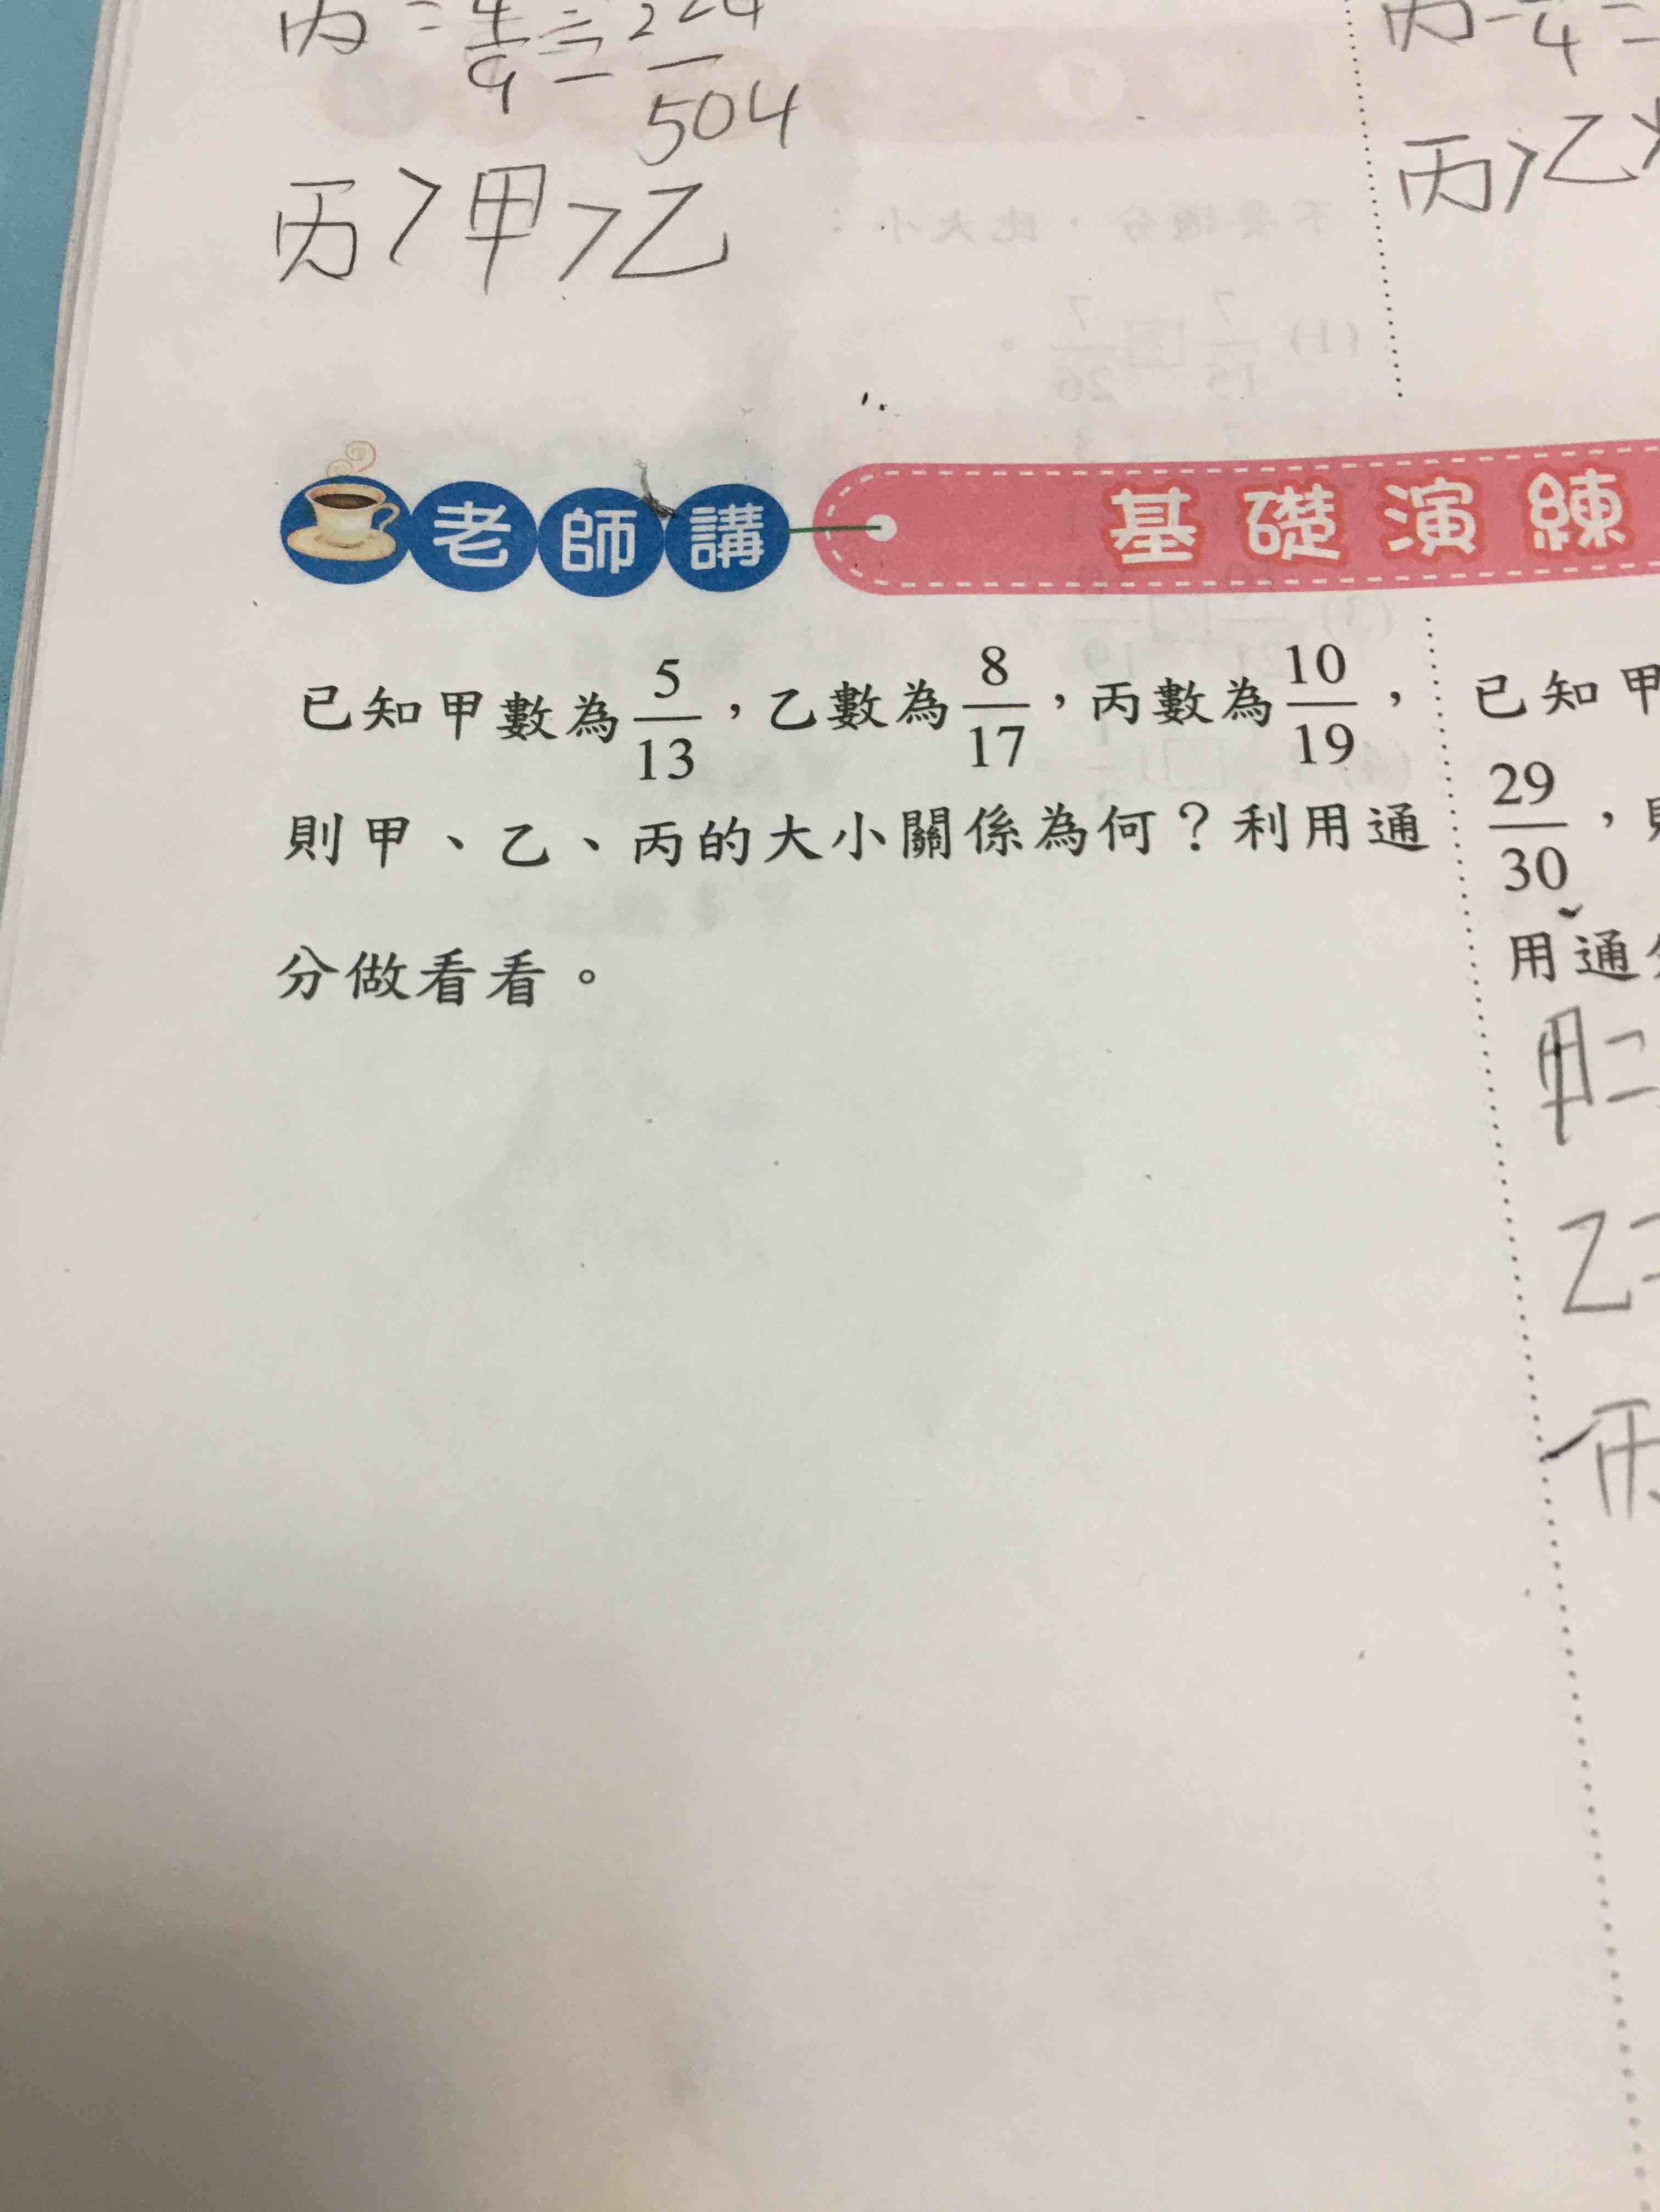 丙=4/9=224/504
丙>甲>乙
丙>乙
老師講
基礎演練
已知甲數為5/13，乙數為8/17，丙數為10/19，
則甲、乙、丙的大小關係為何？利用通
分做看看。
已知甲
29/30，則
用通分
甲=
乙=
丙